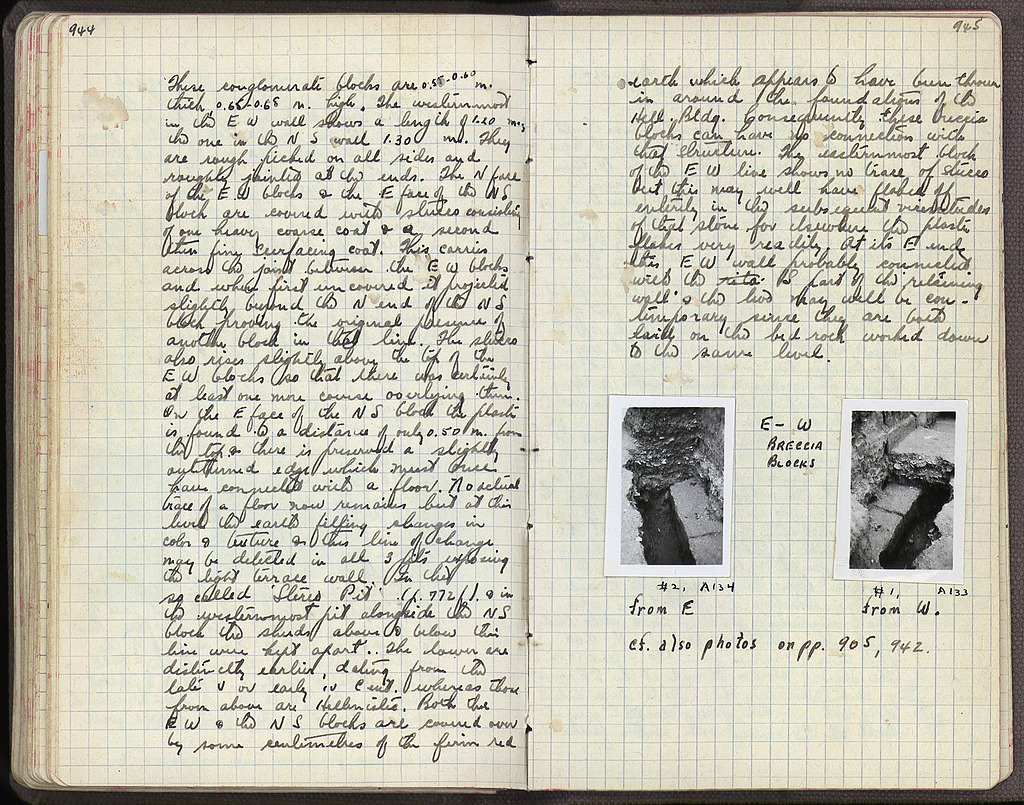 944
These conglomerate blocks are 0.55-0.60 m.
thick 0.65-0.68 m. high. The westernmost
in the E W wall shows a length of 1.20 m,
the one in the N S wall 1.30 m. They
are rough picked on all sides and
roughly jointed at the ends. The N face
of the E W blocks & the E face of the N S
block are covered with stucco consisting
of one heavy coarse coat & a second
thin fine surfacing coat. This carries
across the joint between the E W blocks
and when first uncovered it projected
slightly beyond the N end of the N S
block proving the original presence of
another block in that line. The stucco
also rises slightly above the top of the
E W blocks so that there was certainly
at least one more course overlying them.
On the E face of the N S block the plaster
is found to a distance of only 0.50 m. from
the top & there is preserved a slightly
outturned edge which must once
have connected with a floor. No actual
trace of a floor now remains but at this
level the earth filling changes in
color & texture & this line of change
may be detected in all 3 pits exposing
the light terrace wall. In the
so called 'Stereo Pit' (p. 772 f.) & in
the westernmost pit alongside the N S
block the sherds above & below this
line were kept apart. The lower are
distinctly earlier, dating from the
late V or early IV Cent. whereas those
from above are Hellenistic. Both the
E W & the N S blocks are covered over
by some centimetres of the firm red
945
earth which appears to have been thrown
in around the foundations of the
Hell. Bldg. Consequently these breccia
blocks can have no connection with
that structure. The easternmost block
of the E W line shows no trace of stucco
but this may well have flaked off
entirely in the subsequent vicissitudes
of that stone for elsewhere the plaster
flakes very readily. At its E end
this E W wall probably connected
with the part of the retaining
wall & the two may well be con-
temporary since they are both
laid on the bed rock worked down
to the same level.
E-W
BRECCIA
BLOCKS
#2, A134
from E
#1, A133
from W.
cf. also photos on pp. 905, 942.